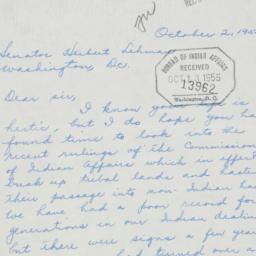 October 2, 195
Senator Herbert Lehman
Washington, Dc.
BUREAU OF INDIAN AFFAIRS
RECEIVED
OCT 13 1955
13962
Washington, D. C.
Dear sir,
I know your life is
hectic, but I do hope you ha
found time to look into the
recent rulings of the Commission
of Indian Affairs which in effect
break up tribal lands and haste
their passage into non-Indian ha
we have had a poor record for
generations in our Indian dealin
but there were signs a few year
turned over a